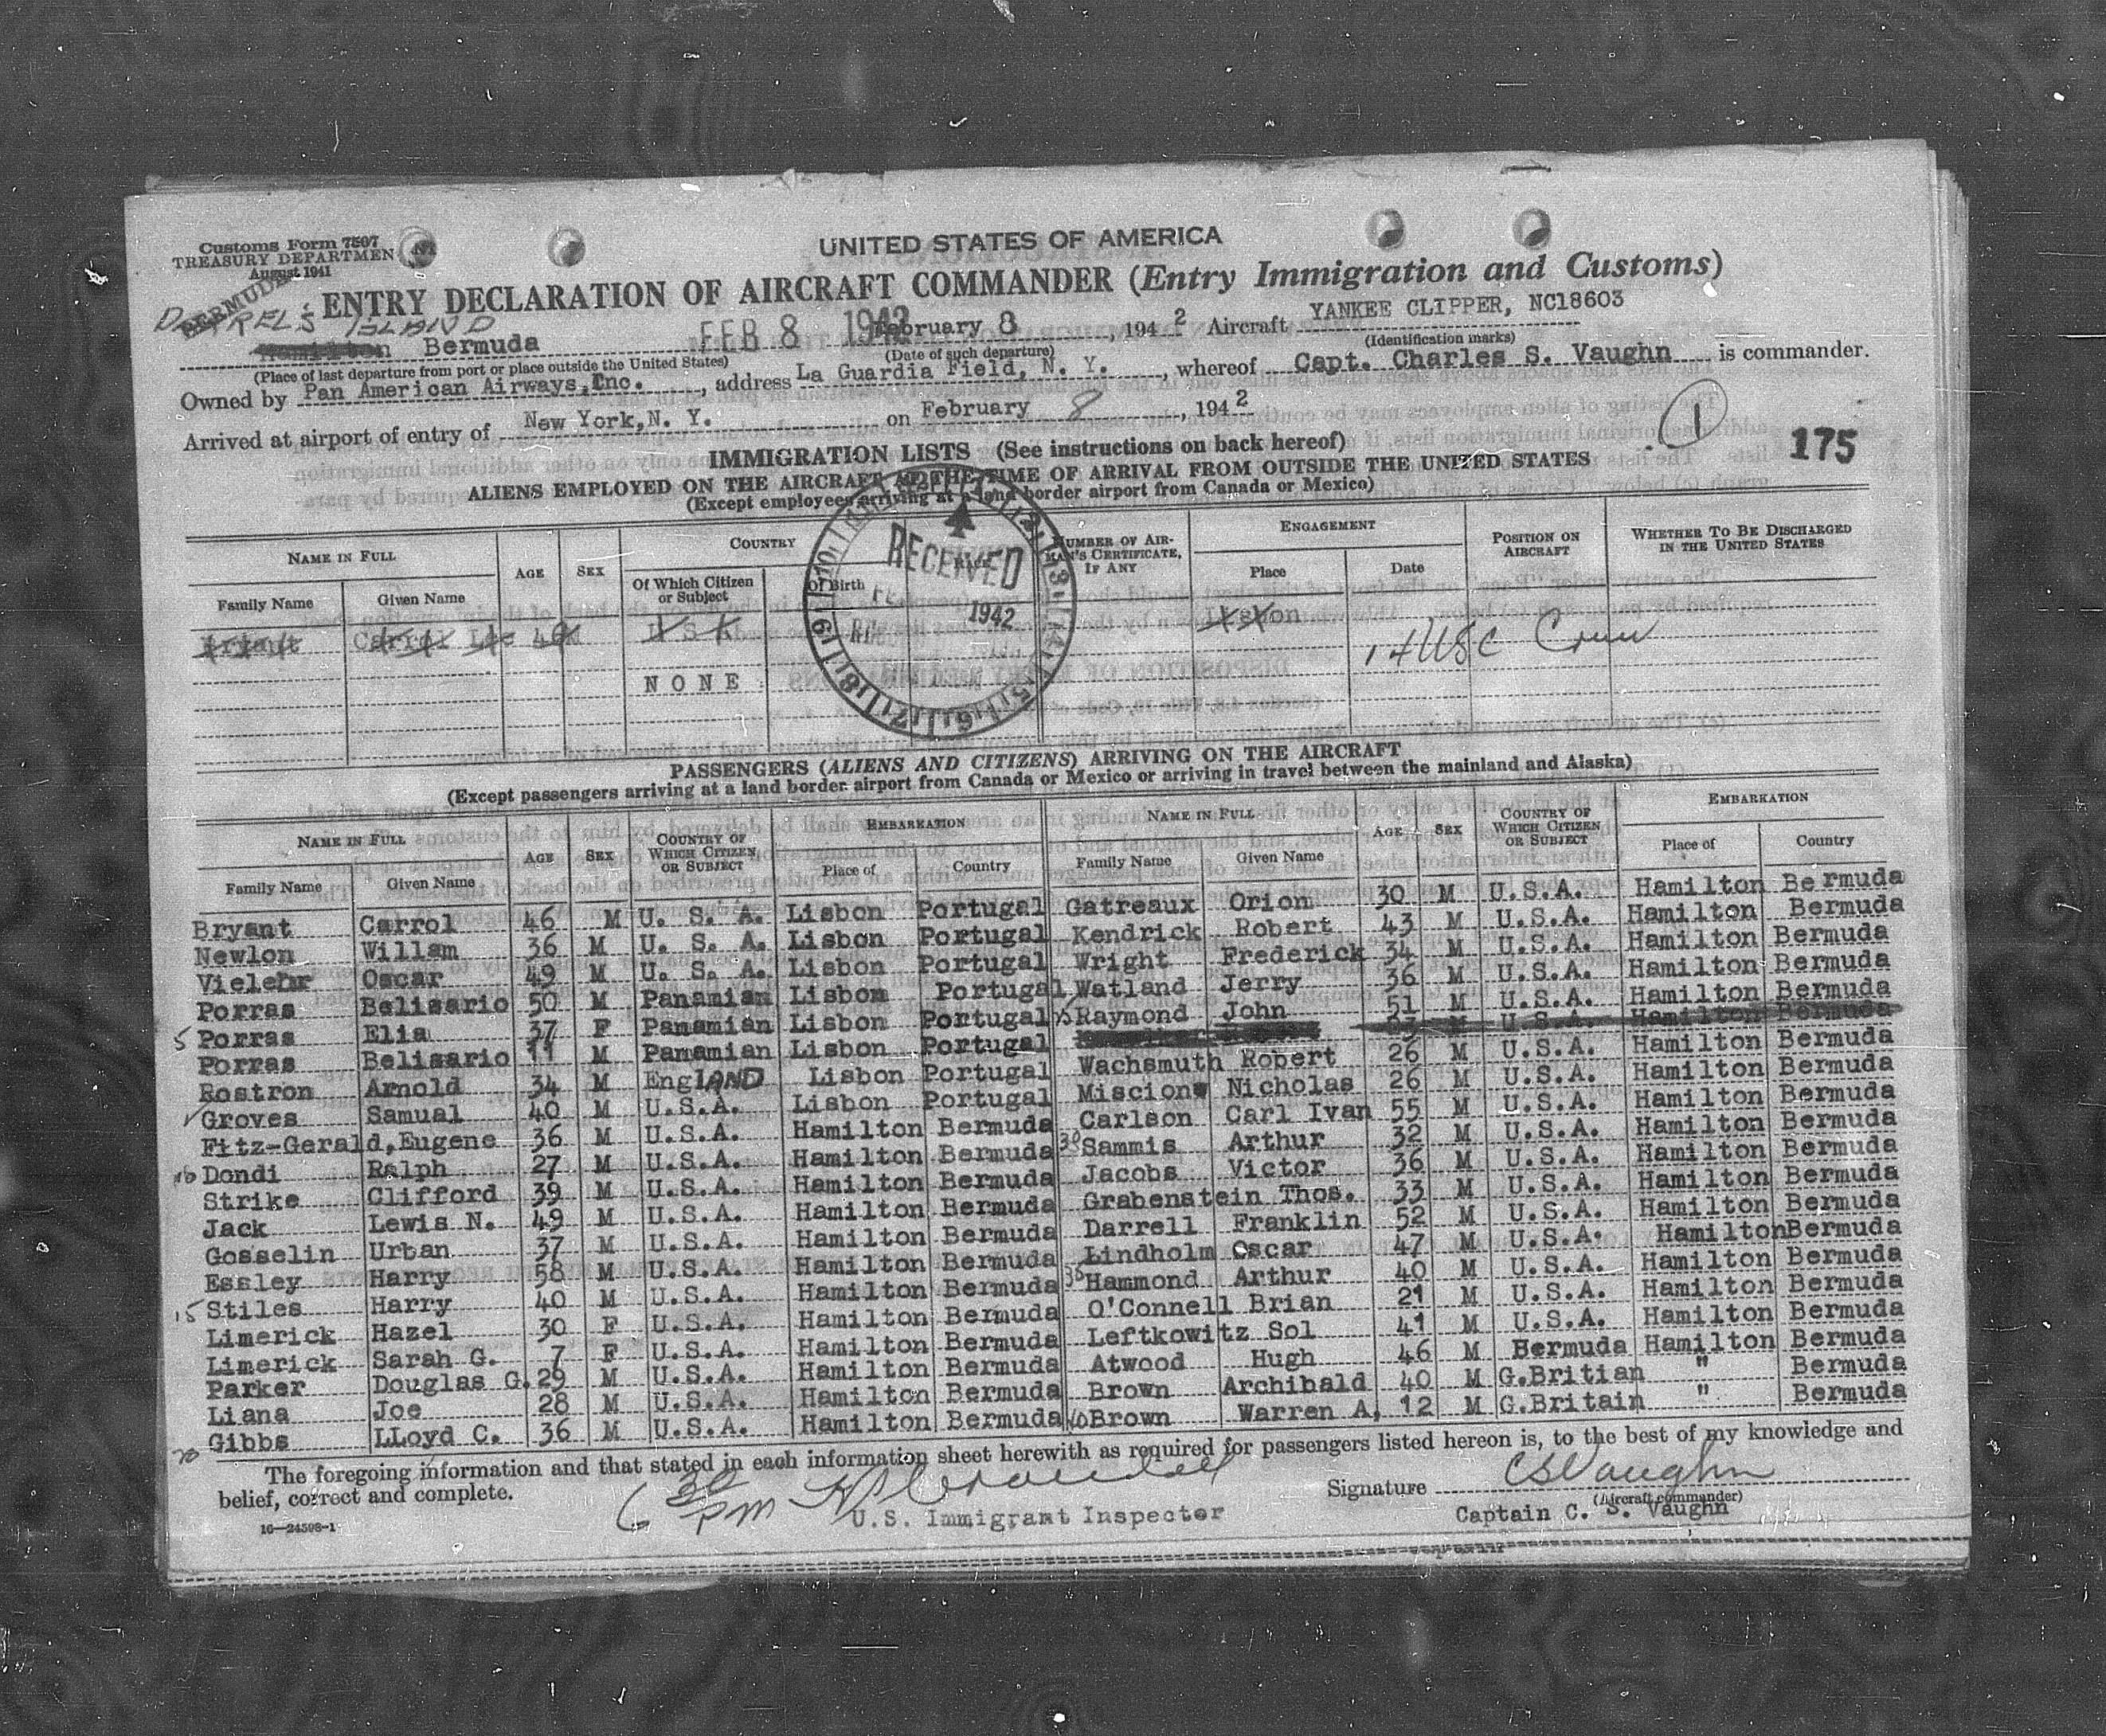 Customs Form 7507
TREASURY DEPARTMEN
August 1941
BERMUDA
UNITED STATES OF AMERICA
ENTRY DECLARATION OF AIRCRAFT COMMANDER (Entry Immigration and Customs)
ISLAND
Bermuda FEB 8 1942 February 8, 1942 Aircraft YANKEE CLIPPER, NC18603
(Place of last departure from port or place outside the United States) (Date of such departure) (Identification marks)
Owned by Pan American Airways, Inc., address La Guardia Field, N. Y., whereof Capt. Charles S. Vaughn is commander.
Arrived at airport of entry of New York, N. Y. on February 8, 1942
1
175
IMMIGRATION LISTS (See instructions on back hereof)
ALIENS EMPLOYED ON THE AIRCRAFT AT THE TIME OF ARRIVAL FROM OUTSIDE THE UNITED STATES
(Except employees arriving at a land border airport from Canada or Mexico)
NAME IN FULL AGE SEX COUNTRY RACE NUMBER OF AIRMAN'S CERTIFICATE, IF ANY ENGAGEMENT POSITION ON AIRCRAFT WHETHER TO BE DISCHARGED IN THE UNITED STATES
Family Name Given Name Of Which Citizen or Subject Of Birth Place Date
RECEIVED
1942
NONE
14 USC Crew
PASSENGERS (ALIENS AND CITIZENS) ARRIVING ON THE AIRCRAFT
(Except passengers arriving at a land border airport from Canada or Mexico or arriving in travel between the mainland and Alaska)
NAME IN FULL AGE SEX COUNTRY OF WHICH CITIZEN OR SUBJECT EMBARKATION NAME IN FULL AGE SEX COUNTRY OF WHICH CITIZEN OR SUBJECT EMBARKATION
Family Name Given Name Place of Country Family Name Given Name Place of Country
Bryant Carrol 46 M U. S. A. Lisbon Portugal Gatreaux Orion 30 M U.S.A. Hamilton Bermuda
Newlon Willam 36 M U. S. A. Lisbon Portugal Kendrick Robert 43 M U.S.A. Hamilton Bermuda
Vielehr Oscar 49 M U. S. A. Lisbon Portugal Wright Frederick 34 M U.S.A. Hamilton Bermuda
Porras Belisario 50 M Panamian Lisbon Portugal Watland Jerry 36 M U.S.A. Hamilton Bermuda
5 Porras Elia 37 F Panamian Lisbon Portugal Raymond John 51 M U.S.A. Hamilton Bermuda
Porras Belisario 11 M Panamian Lisbon Portugal M U.S.A. Hamilton Bermuda
Rostron Arnold 34 M EnglAND Lisbon Portugal Wachsmuth Robert 26 M U.S.A. Hamilton Bermuda
Groves Samual 40 M U.S.A. Lisbon Portugal Miscione Nicholas 26 M U.S.A. Hamilton Bermuda
Fitz-Gerald, Eugene 36 M U.S.A. Hamilton Bermuda Carlson Carl Ivan 55 M U.S.A. Hamilton Bermuda
10 Dondi Ralph 27 M U.S.A. Hamilton Bermuda 30 Sammis Arthur 32 M U.S.A. Hamilton Bermuda
Strike Clifford 39 M U.S.A. Hamilton Bermuda Jacobs Victor 36 M U.S.A. Hamilton Bermuda
Jack Lewis N. 49 M U.S.A. Hamilton Bermuda Grabenstein Thos. 33 M U.S.A. Hamilton Bermuda
Gosselin Urban 37 M U.S.A. Hamilton Bermuda Darrell Franklin 52 M U.S.A. Hamilton Bermuda
Essley Harry 58 M U.S.A. Hamilton Bermuda Lindholm Oscar 47 M U.S.A. Hamilton Bermuda
15 Stiles Harry 40 M U.S.A. Hamilton Bermuda 35 Hammond Arthur 40 M U.S.A. Hamilton Bermuda
Limerick Hazel 30 F U.S.A. Hamilton Bermuda O'Connell Brian 21 M U.S.A. Hamilton Bermuda
Limerick Sarah G. 7 F U.S.A. Hamilton Bermuda Leftkowitz Sol 41 M U.S.A. Hamilton Bermuda
Parker Douglas G. 29 M U.S.A. Hamilton Bermuda Atwood Hugh 46 M Bermuda Hamilton Bermuda
Liana Joe 28 M U.S.A. Hamilton Bermuda Brown Archibald 40 M G.Britian " Bermuda
20 Gibbs LLoyd C. 36 M U.S.A. Hamilton Bermuda 40 Brown Warren A. 12 M G.Britain " Bermuda
The foregoing information and that stated in each information sheet herewith as required for passengers listed hereon is, to the best of my knowledge and
belief, correct and complete.
6 30 PM
Signature CS Vaughn
(Aircraft commander)
U.S. Immigrant Inspector
Captain C. S. Vaughn
16—24598-1